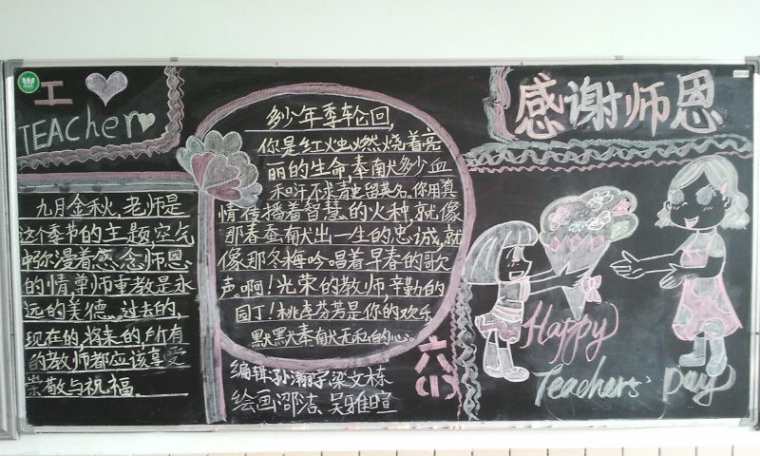 I
TEACher
感谢师恩
九月金秋,老师是
这个季节的主题,空气
中弥漫着感念师恩
的情尊师重教是永
远的美德。过去的,
现在的,将来的,所有
的教师都应该享受
崇敬与祝福。
多少年季轮回,
你是红火虫燃烧着亮
丽的生命奉献多少血
和汗不求青史留英名。你用真
情传播着智慧的火种。就像
那春蚕献出一生的忠诚,就
像那冬梅吟唱着早春的歌
声。啊!光荣的教师,辛勤的
园丁!桃李芬芳是你的欢乐
默默奉献无私的心。
六(1)
编辑:孙瀚宇 梁文栋
绘画:邵洁、吴雅暄
Happy
Teachers' Day